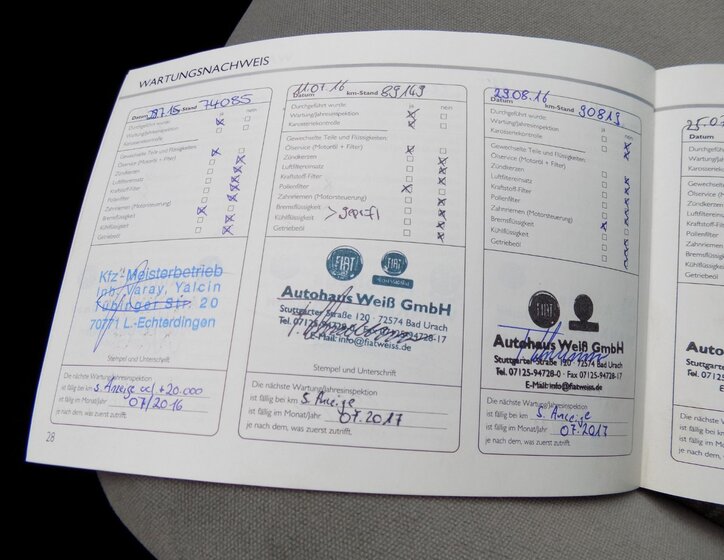 WARTUNGSNACHWEIS
Datum km-Stand 74085
ja nein
Durchgeführt wurde:
Wartung/Jahresinspektion
Karosseriekontrolle
Gewechselte Teile und Flüssigkeiten:
Ölservice (Motoröl + Filter)
Zündkerzen
Luftfiltereinsatz
Kraftstoff-Filter
Pollenfilter
Zahnriemen (Motorsteuerung)
Bremsflüssigkeit
Kühlflüssigkeit
Getriebeöl
Kfz Meisterbetrieb
Inh. Varay, Yalcin
Tübinger Str. 20
70771 L.-Echterdingen
Stempel und Unterschrift
Die nächste Wartung/Jahresinspektion
ist fällig bei km S. Anzeige +20.000
ist fällig im Monat/Jahr 07/2016
je nach dem, was zuerst zutrifft.
28
11.07.16 89149
Datum km-Stand
ja nein
Durchgeführt wurde:
Wartung/Jahresinspektion
Karosseriekontrolle
Gewechselte Teile und Flüssigkeiten:
Ölservice (Motoröl + Filter)
Zündkerzen
Luftfiltereinsatz
Kraftstoff-Filter
Pollenfilter
Zahnriemen (Motorsteuerung)
Bremsflüssigkeit
Kühlflüssigkeit
Getriebeöl
FIAT
Autohaus Weiß GmbH
Stuttgarter Straße 120 · 72574 Bad Urach
Tel. 07125-94728-0 · Fax 07125-94728-17
E-Mail: info@fiatweiss.de
Stempel und Unterschrift
Die nächste Wartung/Jahresinspektion
ist fällig bei km S. Anzeige
ist fällig im Monat/Jahr 07.2017
je nach dem, was zuerst zutrifft.
29.08.16 90819
Datum km-Stand
ja nein
Durchgeführt wurde:
Wartung/Jahresinspektion
Karosseriekontrolle
Gewechselte Teile und Flüssigkeiten:
Ölservice (Motoröl + Filter)
Zündkerzen
Luftfiltereinsatz
Kraftstoff-Filter
Pollenfilter
Zahnriemen (Motorsteuerung)
Bremsflüssigkeit
Kühlflüssigkeit
Getriebeöl
FIAT
Autohaus Weiß GmbH
Stuttgarter Straße 120 · 72574 Bad Urach
Tel. 07125-94728-0 · Fax 07125-94728-17
E-Mail: info@fiatweiss.de
Die nächste Wartung/Jahresinspektion
ist fällig bei km S. Anzeige
ist fällig im Monat/Jahr 07.2017
je nach dem, was zuerst zutrifft.